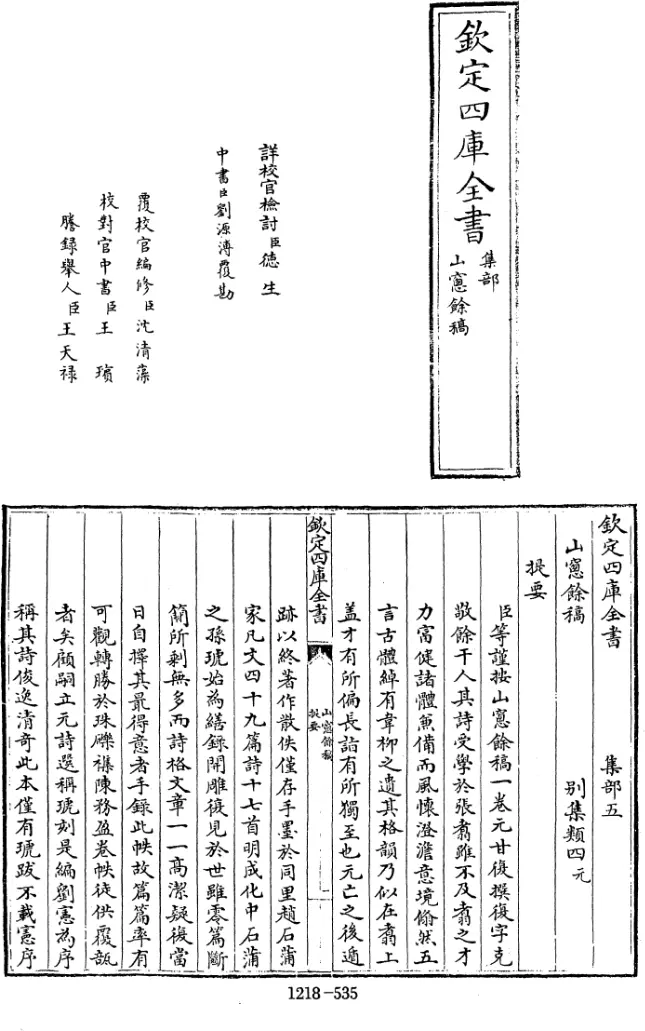 欽定四庫全書
集部
山窻餘稿
詳校官檢討臣德生
中書臣劉源溥覆勘
覆校官編修臣沈清藻
校對官中書臣王瑸
謄錄舉人臣王天禄
欽定四庫全書 集部五
山窻餘稿 别集類四元
提要
臣等謹按山窻餘稿一卷元甘復撰復字克
敬餘干人其詩受學於張翥雖不及翥之才
力富健諸體兼備而風懷澄澹意境翛然五
言古體綽有韋柳之遺其格韻乃似在翥上
盖才有所偏長詣有所獨至也元亡之後遁
欽定四庫全書
山窻餘稿
提要
一
跡以終著作散佚僅存手墨於同里趙石蒲
家凡文四十九篇詩十七首明成化中石蒲
之孫琥始為繕録開雕復見於世雖零篇斷
簡所剩無多而詩格文章一一高潔疑復當
日自擇其最得意者手録此帙故篇篇率有
可觀轉勝於珠礫襍陳務盈卷帙徒供覆瓿
者矣顧嗣立元詩選稱琥刻是編劉憲為序
稱其詩俊逸清奇此本僅有琥跋不載憲序
1218-535